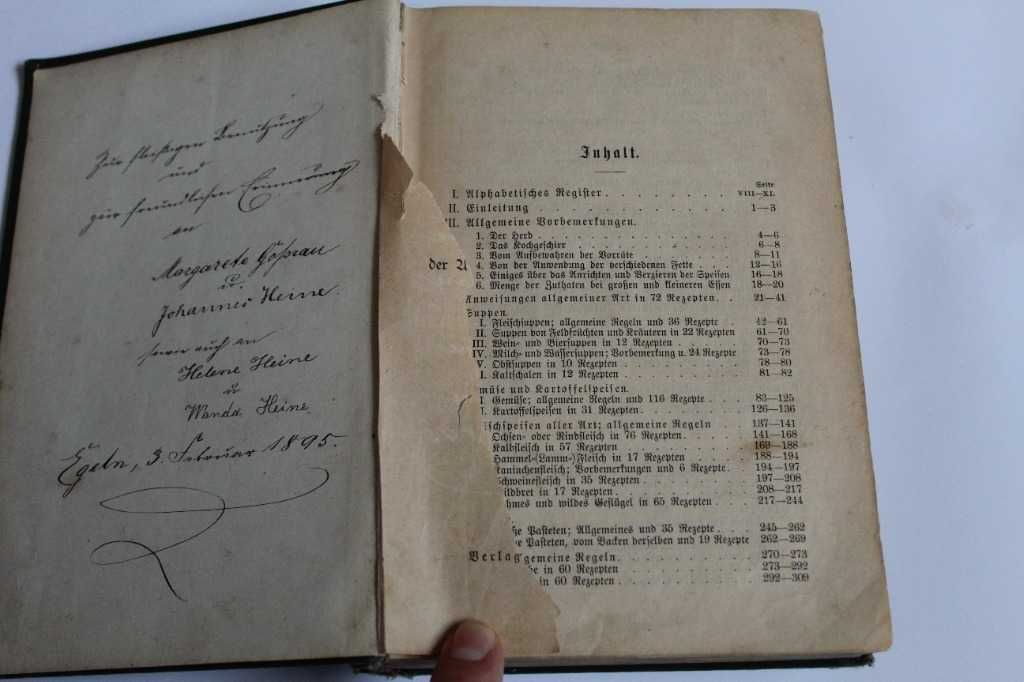 Zur fleißigen Benutzung
und
zur freundlichen Erinnerung
an
Margarete Goßrau
u
Johannes Heine.
sowie auch an
Helene Heine
u
Wanda Heine.
Egeln, 3. Februar 1895.
Inhalt.
Seite
I. Alphabetisches Register . . . VIII—XL
II. Einleitung . . . 1—3
II. Allgemeine Vorbemerkungen.
1. Der Herd . . . 4—6
2. Das Kochgeschirr . . . 6—8
3. Vom Aufbewahren der Vorräte . . . 8—11
der A
4. Von der Anwendung der verschiedenen Fette . . . 12—16
5. Einiges über das Anrichten und Verzieren der Speisen 16—18
6. Menge der Zuthaten bei großen und kleineren Essen 18—20
Anweisungen allgemeiner Art in 72 Rezepten . . 21—41
Suppen
I. Fleischsuppen; allgemeine Regeln und 36 Rezepte . 42—61
II. Suppen von Feldfrüchten und Kräutern in 22 Rezepten 61—70
III. Wein- und Biersuppen in 12 Rezepten . . . 70—73
IV. Milch- und Wassersuppen; Vorbemerkung u. 24 Rezepte 73—78
V. Obstsuppen in 10 Rezepten . . . 78—80
I. Kaltschalen in 12 Rezepten . . . 81—82
müse und Kartoffelspeisen.
I. Gemüse; allgemeine Regeln und 116 Rezepte . . . 83—125
I. Kartoffelspeisen in 31 Rezepten . . . 126—136
schspeisen aller Art; allgemeine Regeln . . . 137—141
Ochsen- oder Rindfleisch in 76 Rezepten . . . 141—168
Kalbfleisch in 57 Rezepten . . . 169—188
Hammel-(Lamm-)Fleisch in 17 Rezepten . . . 188—194
aninchenfleisch; Vorbemerkungen und 6 Rezepte . 194—197
Schweinefleisch in 35 Rezepten . . . 197—208
ildbret in 17 Rezepten . . . 208—217
hmes und wildes Geflügel in 65 Rezepten . . . 217—244
ße Pasteten; Allgemeines und 35 Rezepte . . . 245—262
e Pasteten, vom Backen derselben und 19 Rezepte 262—269
Verlag
gemeine Regeln . . . 270—273
e in 60 Rezepten . . . 273—292
in 60 Rezepten . . . 292—309